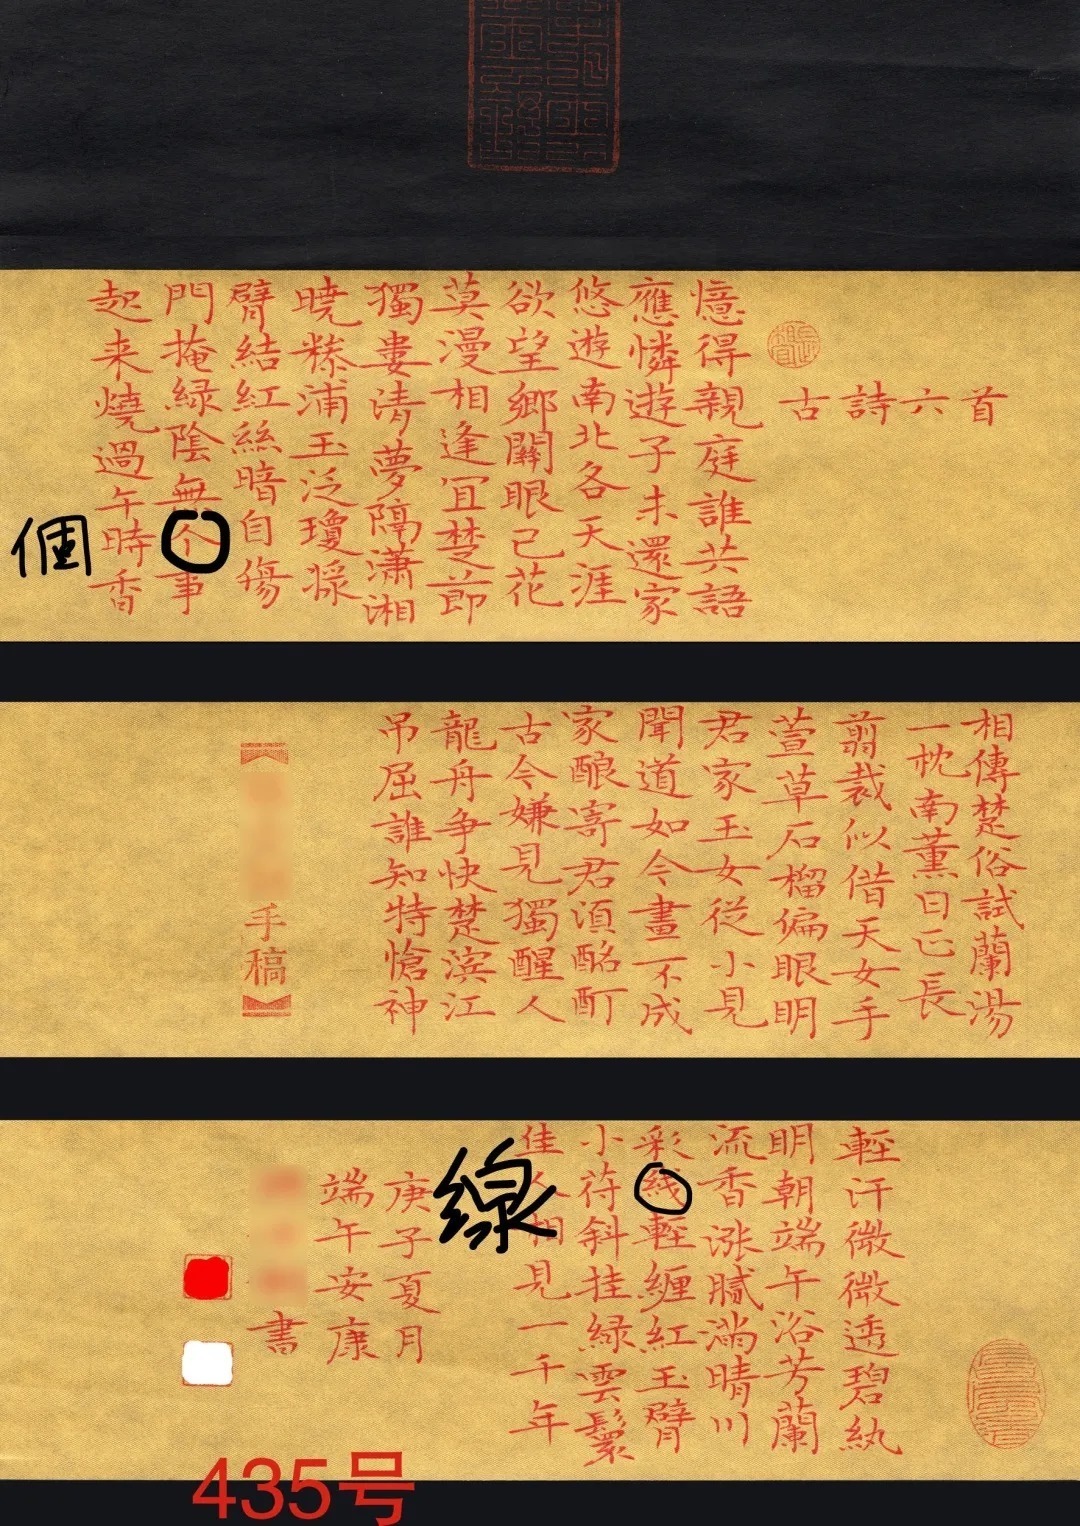 古詩六首
憶得親庭誰共語
應憐遊子未還家
悠遊南北各天涯
欲望鄉關眼已花
莫漫相逢冝楚節
獨婁清夢隔瀟湘
曉榛浦玉泛瓊漿
臂結紅絲暗自傷
門掩緑陰無个事
起来燒過午時香
個
相傳楚俗試蘭湯
一枕南薰日正長
翦裁似借天女手
萱草石榴偏眼明
君家玉女從小見
聞道如今畫不成
家醸寄君須酩酊
古今嫌見獨醒人
龍舟争快楚滨江
吊屈誰知特愴神
手稿
輕汗微微透碧紈
明朝端午浴芳蘭
流香涨膩滿晴川
彩线輕纏紅玉臂
小符斜挂緑雲鬟
佳人相見一千年
線
庚子夏月
端午安康
書
435号